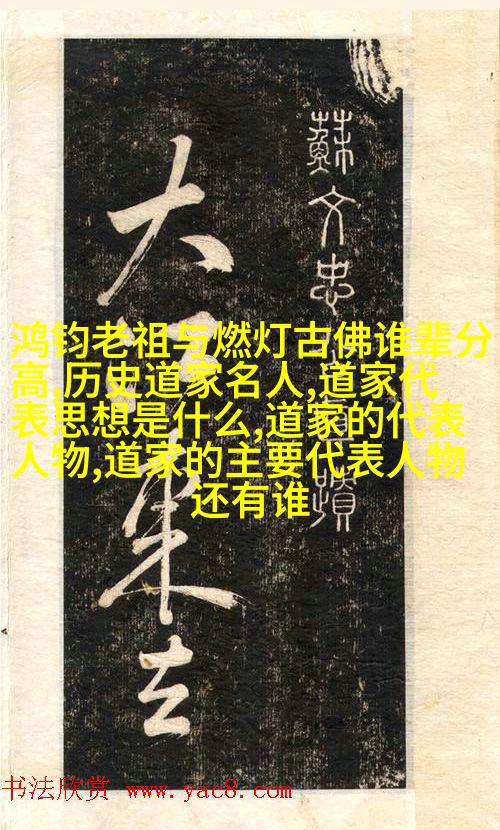 蘇文忠蹟
大東去
鸿钧老祖与燃灯古佛谁辈分
高,历史道家名人,道家代
表思想是什么,道家的代表
人物,道家的主要代表人物
还有谁
书法欣赏 www.yac8.com